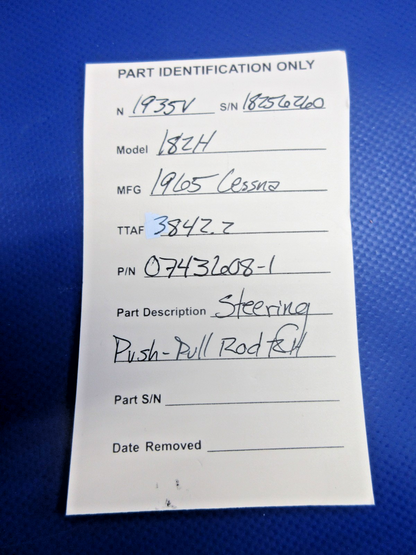 PART IDENTIFICATION ONLY
N 1935V S/N 18256260
Model 182H
MFG 1965 Cessna
TTAF 3842.2
P/N 0743608-1
Part Description Steering
Push-Pull Rod
Part S/N
Date Removed